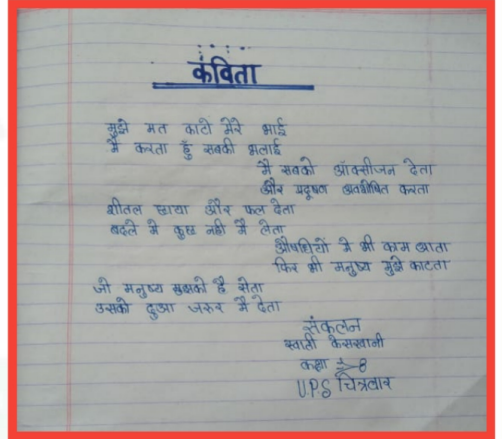 कविता
मुझे मत काटो मेरे भाई
मै करता हुँ सबकी भलाई
मै सबको ऑक्सीजन देता
और प्रदूषण अवशोषित करता
शीतल छाया और फल देता
बदले मे कुछ नही मै लेता
औषधियों मे भी काम आता
फिर भी मनुष्य मुझे काटता
जो मनुष्य मुझको है सेता
उसको दुआ जरुर मै देता
संकलन
स्वाती केसरवानी
कक्षा 8
U.P.S चित्रवार